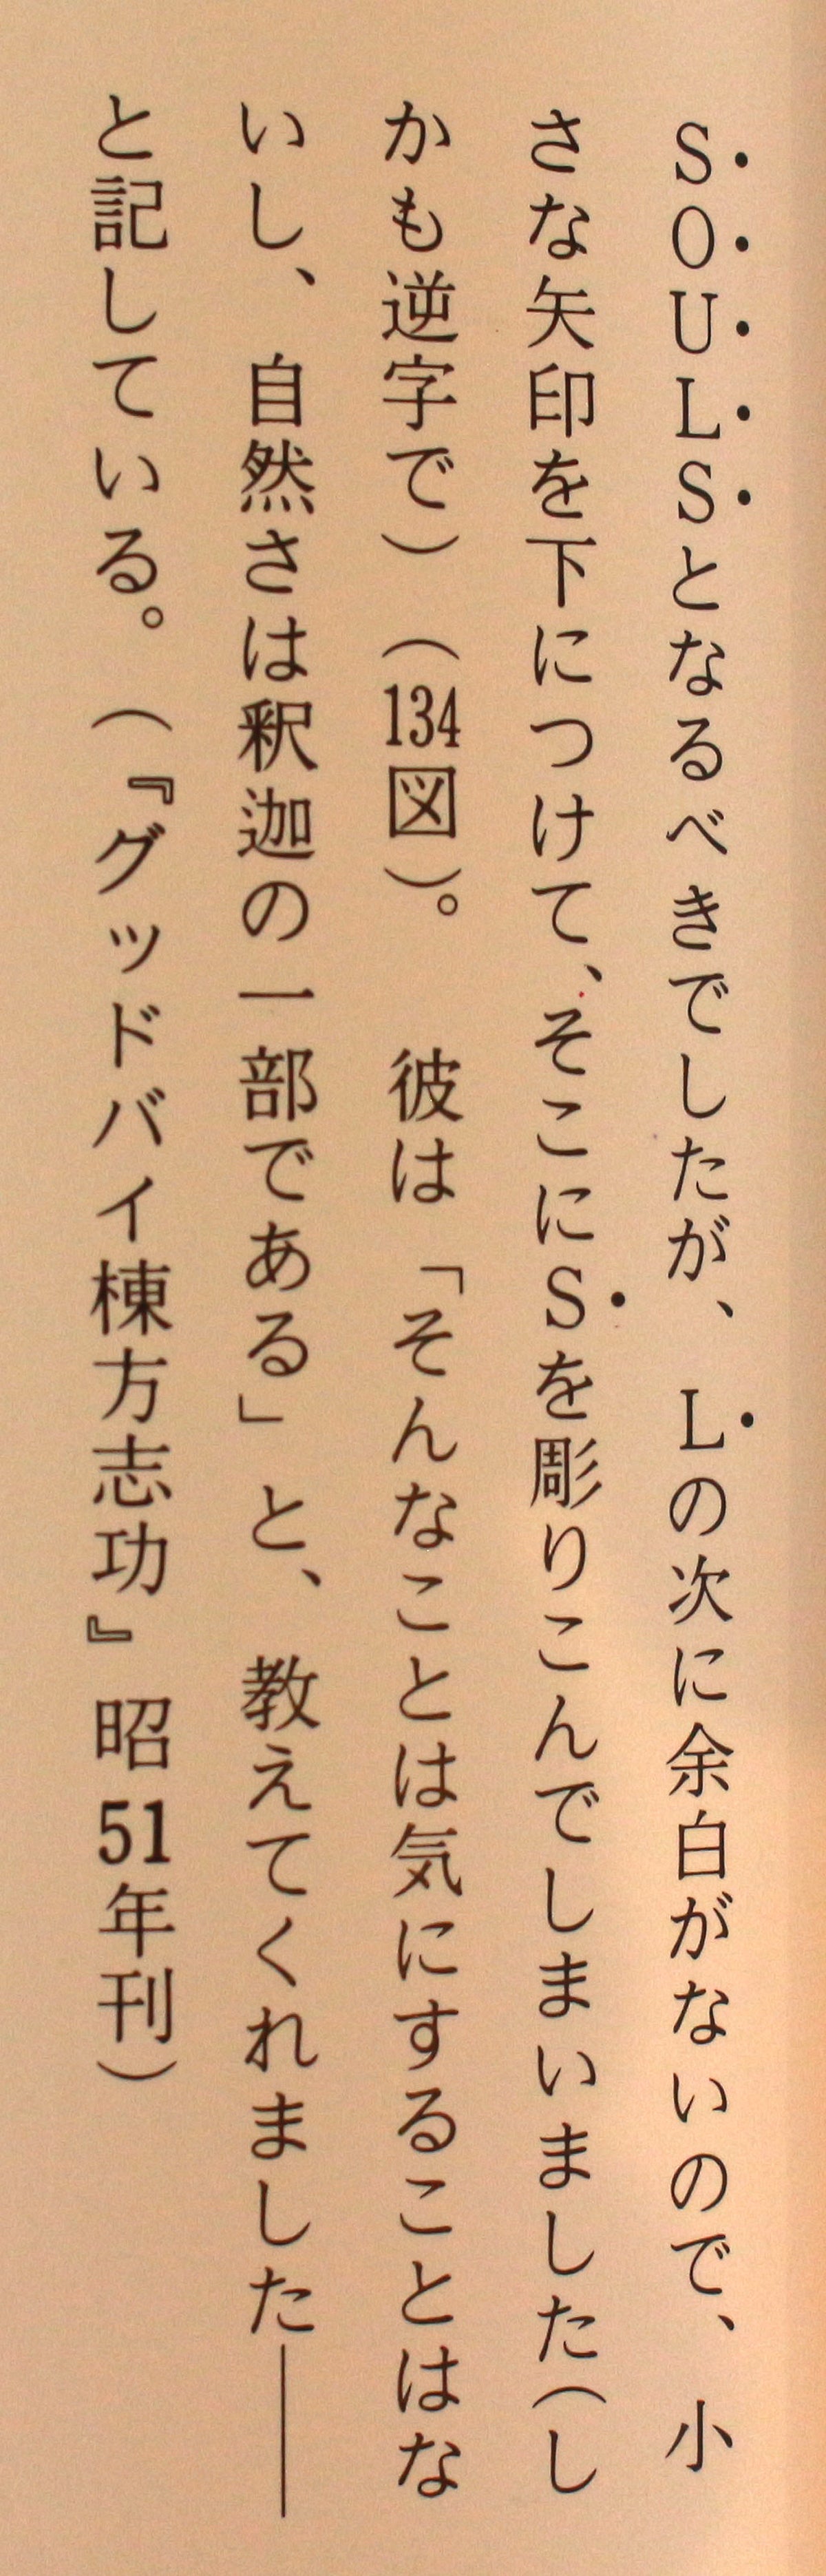 SOULSとなるべきでしたが、Lの次に余白がないので、小
さな矢印を下につけて、そこにSを彫りこんでしまいました(し
かも逆字で)(134図)。　彼は「そんなことは気にすることはな
いし、自然さは釈迦の一部である」と、教えてくれました――
と記している。(『グッドバイ棟方志功』昭51年刊)